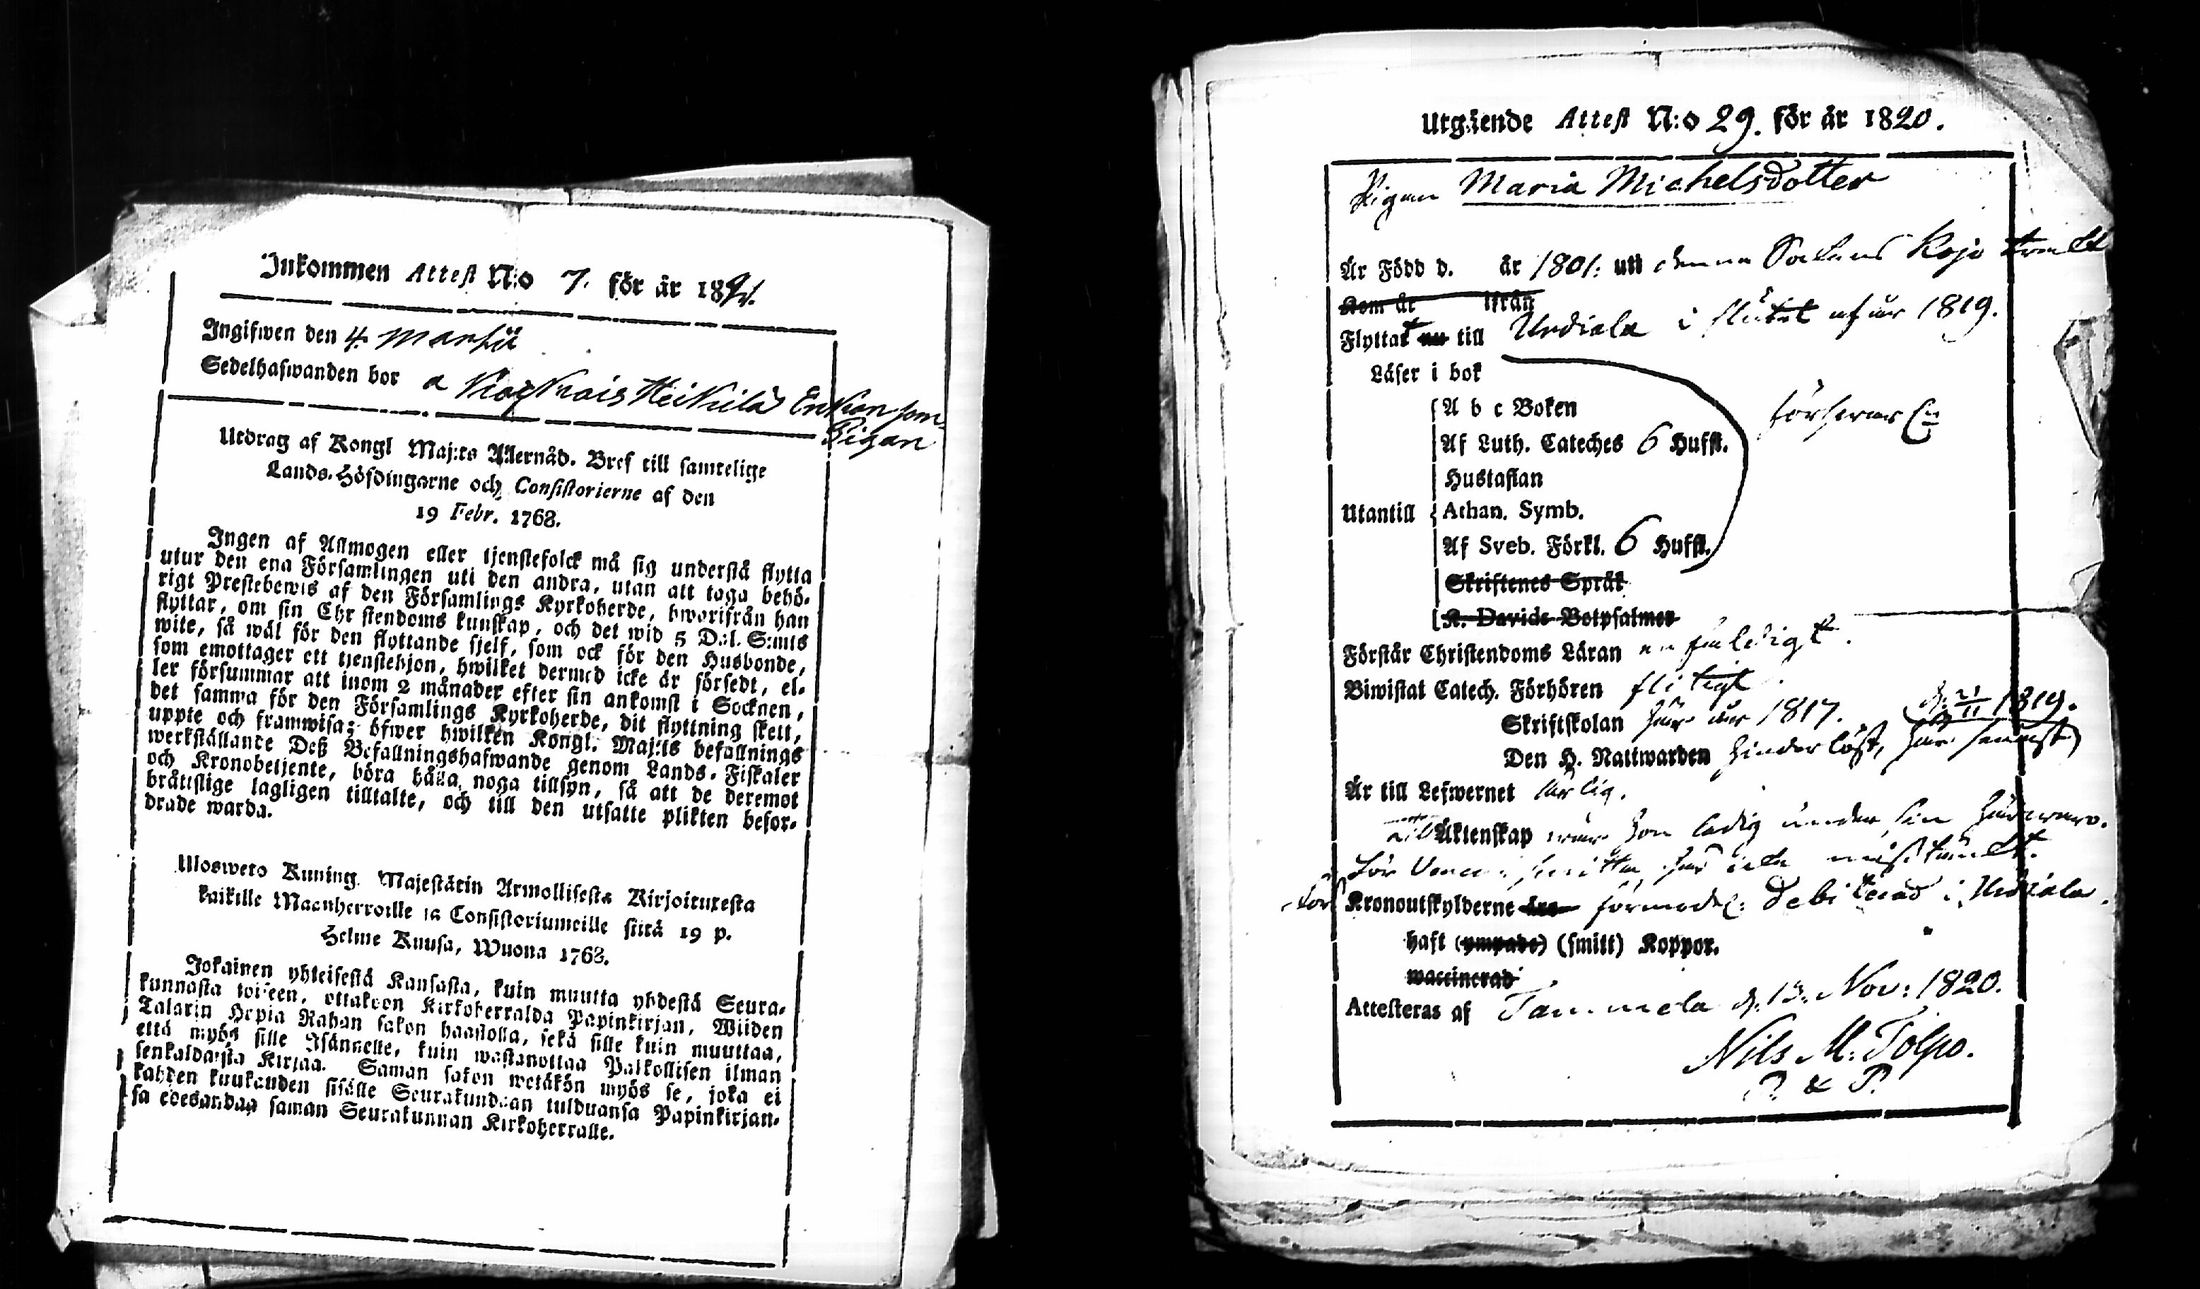 Inkommen Attest N:o 7. för år 1821.
Ingifwen den 4 Martii
Sedelhafwanden bor a Heikkilä Enkan som
Pigan
Utdrag af Kongl Maj:ts Allernåd. Bref till samtelige
Lands-Höfdingarne och Consistorierne af den
19 Febr. 1768.
Ingen af Allmogen eller tjenstefolck må sig understå flytta
utur den ena Församlingen uti den andra, utan att taga behö-
rigt Prestebewis af den Församlings Kyrkoherde, hworifrån han
flyttar, om sin Christendoms kunskap, och det wid 5 Dal. S:mts
wite, så wäl för den flyttande sjelf, som ock för den Husbonde,
som emottager ett tjenstehjon, hwilket dermed icke är försedt, el-
ler försummar att inom 2 månader efter sin ankomst i Socknen,
det samma för den Församlings Kyrkoherde, dit flyttning skett,
uppte och framwisa; öfwer hwilken Kongl. Maj:ts befallnings
werkställande Deß Befallningshafwande genom Lands-Fiskaler
och Kronobetjente, böra hålla noga tillsyn, så att de deremot
bråttslige lagligen tilltalte, och till den utsatte plikten befor-
drade warda.
Uloswero Kuning. Majestätin Armollisesta Kirjoituxesta
kaikille Maanherroille ja Consistoriumeille siitä 19 p.
Helme Kuusa, Wuona 1768.
Jokainen yhteisestä Kansasta, kuin muutta yhdestä Seura-
kunnasta toiseen, ottakoon Kirkoherralda Papinkirjan, Wiiden
Talarin Hopia Rahan sakon haastolla, sekä sille kuin muuttaa,
että myös sille Isännelle, kuin wastanottaa Palkollisen ilman
senkaldaista Kirjaa. Saman sakon wetäkön myös se, joka ei
kahden kuukauden sisälle Seurakundaan tulduansa Papinkirjan-
sa edesandaa saman Seurakunnan Kirkoherralle.
Utgående Attest N:o 29. för år 1820.
Pigan Maria Michelsdotter
Är Född d. år 1801. uti denna Sokens Kojo
Kom år ifrån
Flyttat nu till Urdiala i slutet af år 1819.
Läser i bok
A b c Boken
Af Luth. Cateches 6 Hufst.
Hustaflan
Utantill Athan. Symb.
Af Sveb. Förkl. 6 Hufst.
Skriftenes Språk
K. Davids Botpsalmer
Förstår Christendoms Läran enfaldigt.
Biwistat Catech. Förhören flitigt.
Skriftskolan här år 1817. d. 21/11 1819.
Den H. Nattwarden hinderlöst, här senast
Är till Lefwernet ärlig.
Till Äktenskap war hon ledig under sin härwaro.
För Vener. smitta har icke misstänkt.
för Kronoutskylderne äro debiterad i Urdiala.
haft (ympade) (smitt) Koppor.
waccinerad
Attesteras af Tammela d. 13. Nov: 1820.
Nils M. Tolpo.
P. & P.